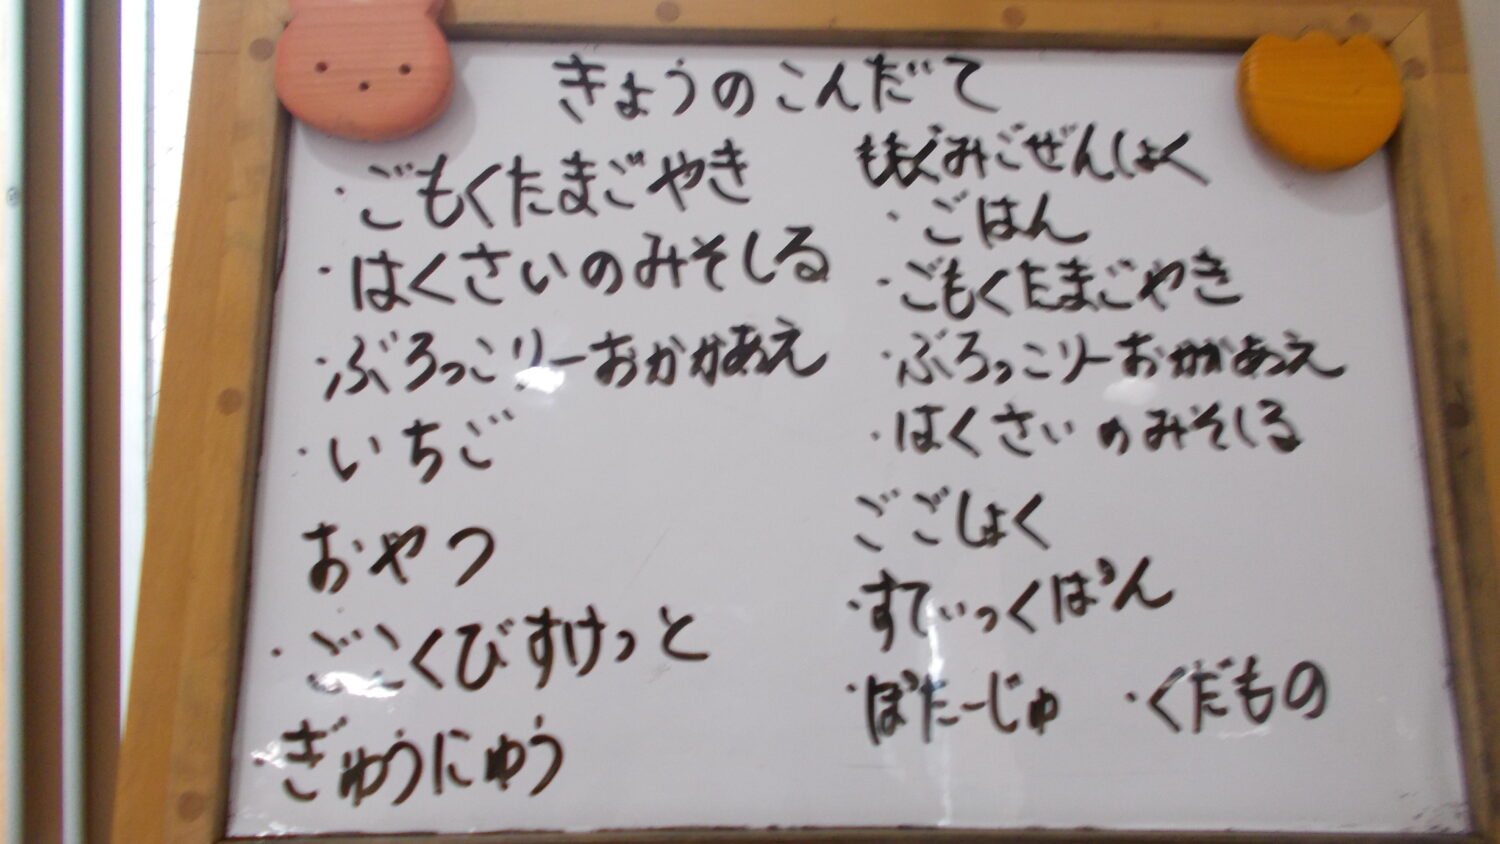 きょうのこんだて
・ごもくたまごやき
・はくさいのみそしる
・ぶろっこりーおかかあえ
・いちご
おやつ
・ごこくびすけっと
・ぎゅうにゅう
もぐもぐみごぜんしょく
・ごはん
・ごもくたまごやき
・ぶろっこりーおかかあえ
・はくさいのみそしる
ごごしょく
・すてぃっくぱん
・ぽたーじゅ ・くだもの